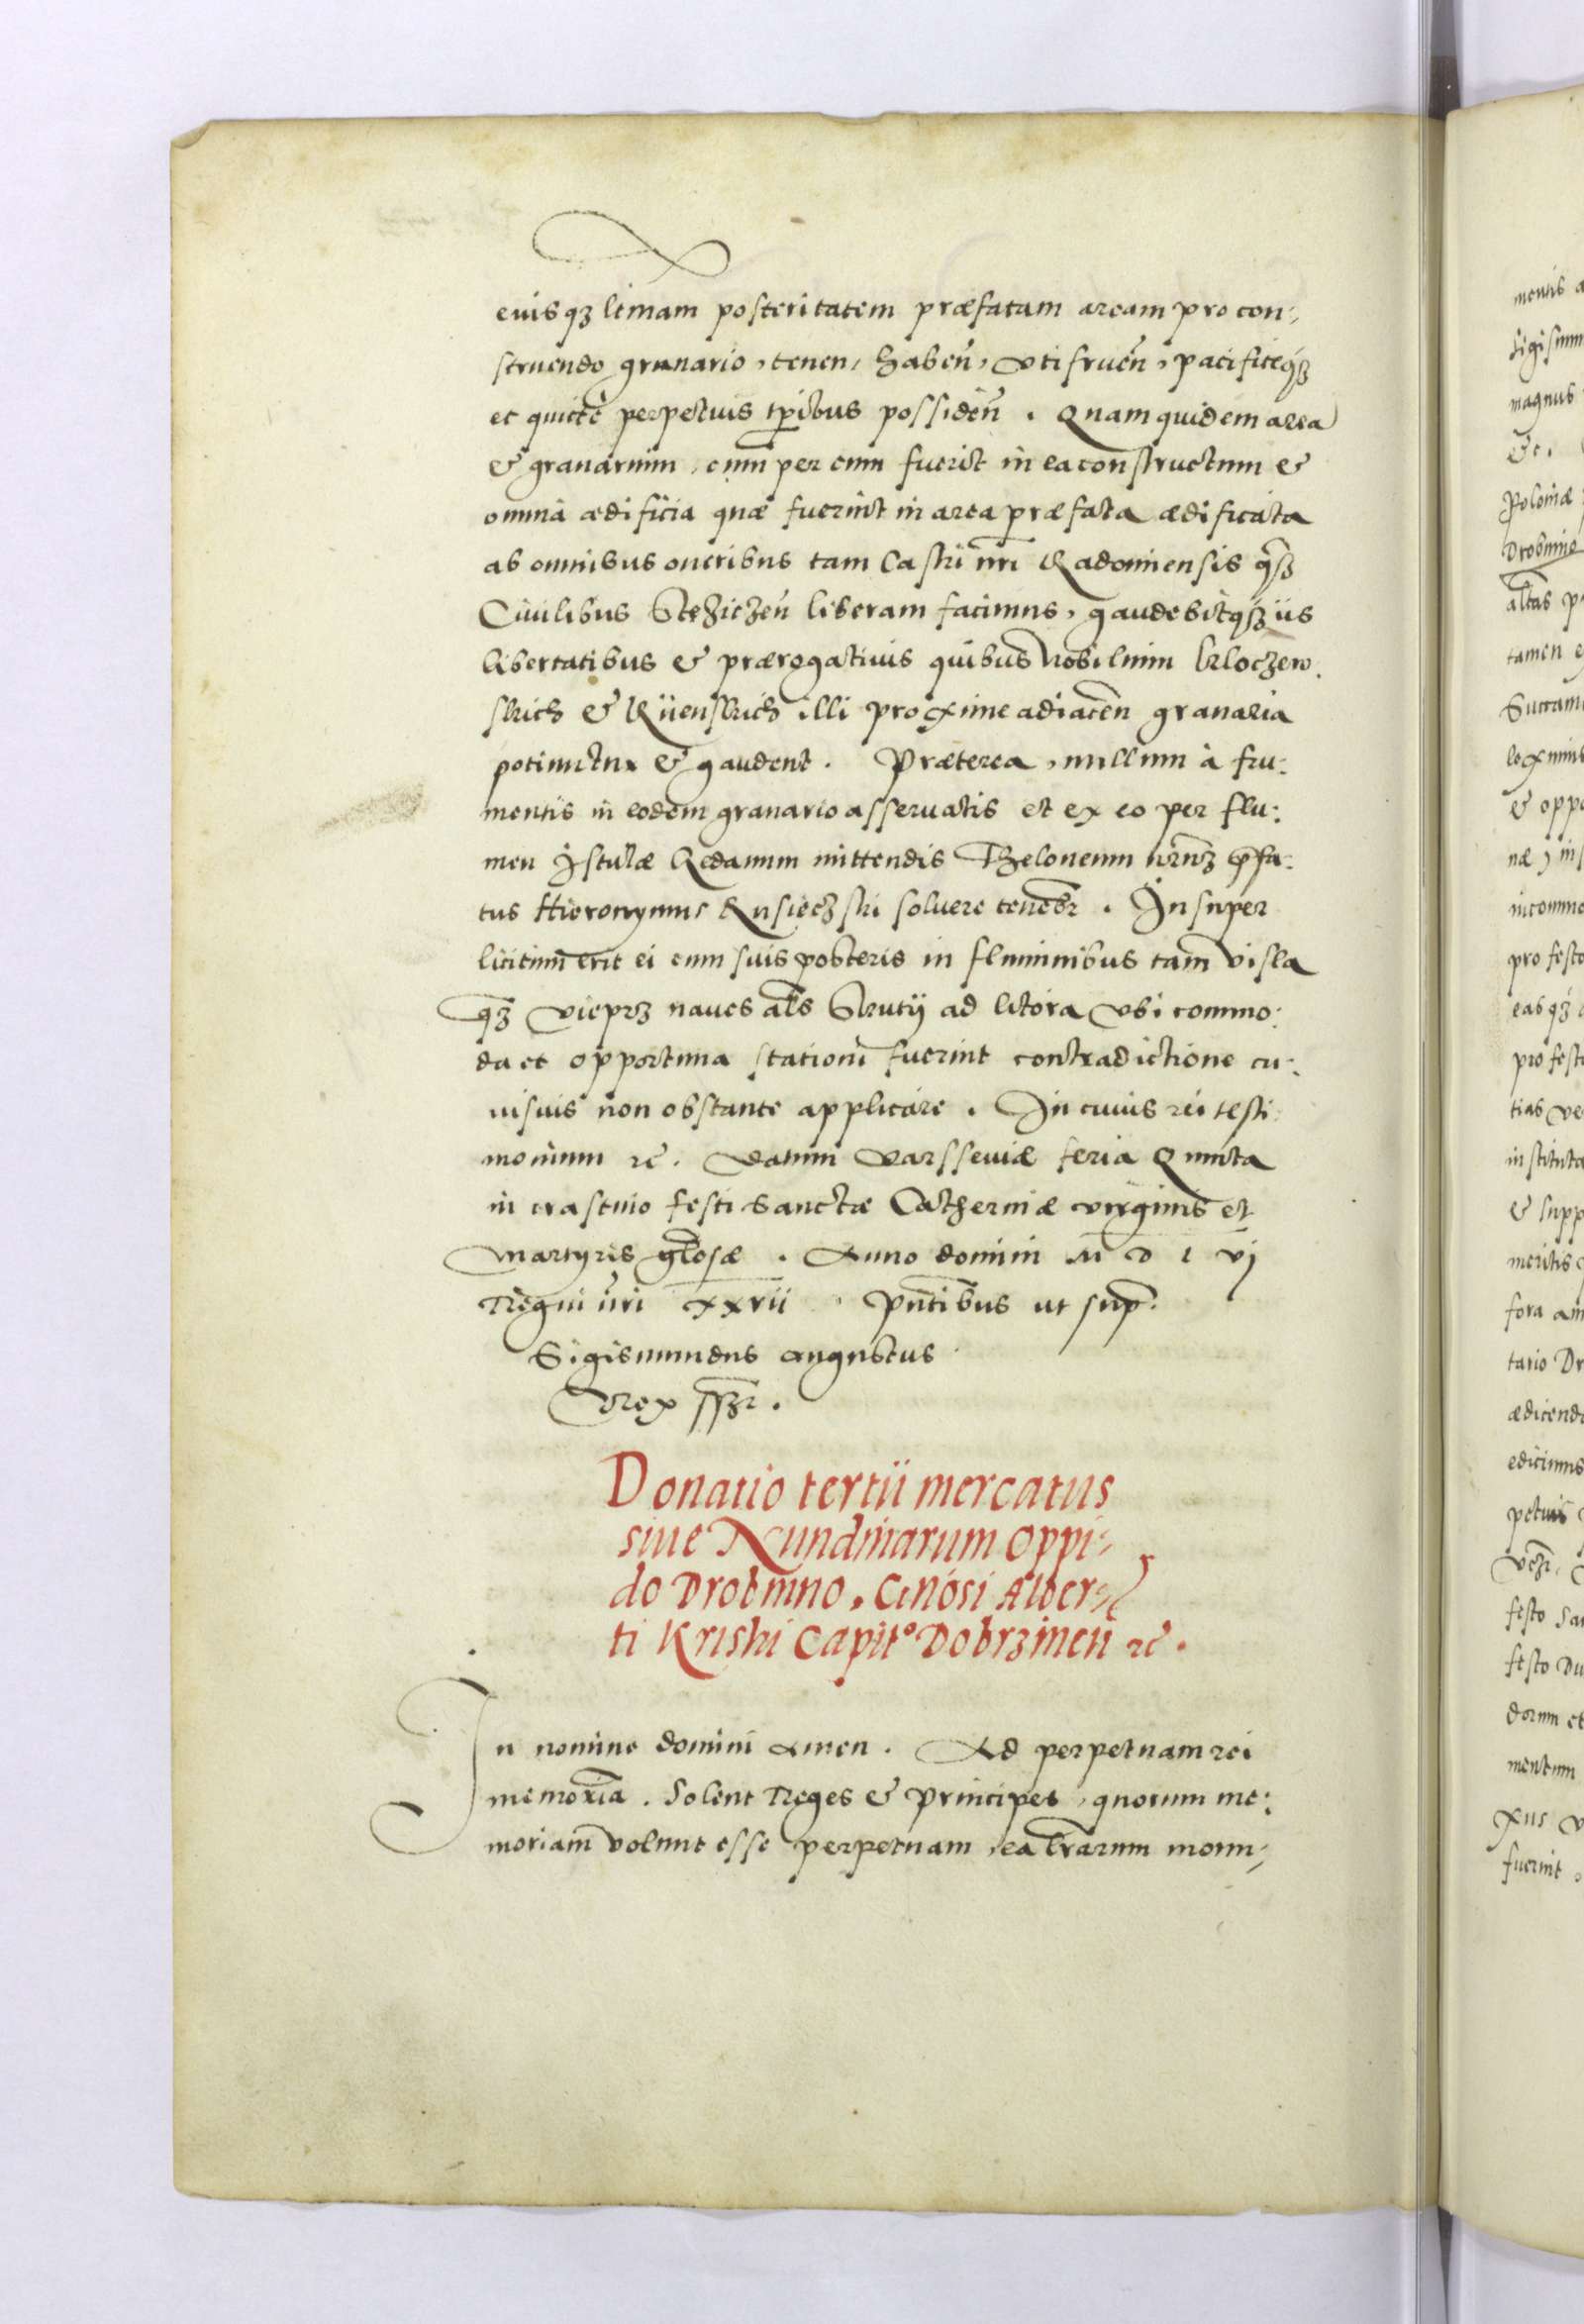 eiusqȝ ltimam posteritatem præfatam aream pro con:,
struendo granario, tenen, haben̄, vti fruen̄, pacificeqȝ
et quiete perpetuis tp̄ibus possiden̄. Quam quidem area
& granarium, cum per eum fuerit in ea constructum &
omnia ædificia quæ fuerint in area præfata ædificata
ab omnibus oneribus tam Castri nr̄i Radomiensis qȝ
Ciuilibus Steziczen̄ liberam facimus, gaudebitqȝ iis
libertatibus & prærogatiuis quibus Nobilium
& illi proxime adiacen̄ granaria
potiuntur & gaudent. Præterea, nullum à fru:
mentis in eodem granario asseruatis et ex eo per flu:
men Istulæ Gedanum mittendis Theloneum nr̄mȝ p̄fa:
tus Hieronymus Rusieczski soluere tenebr̄. Insuper
licitum erit ei cum suis posteris in fluminibus tam Visla
qȝ Vieprz naues al̄s Skutÿ ad litora vbi commo:
da et opportuna stationi fuerint contradictione cu:
uisuis non obstante applicare. In cuius rei testi:
monium ꝛc̄. Datum Varssouiæ feria Quinta
in crastino festi Sanctæ Catherinæ virginis et
Martyris gl̄osæ. Anno domini M D L vj
Regni nr̄i xxvii. Pn̄tibus ut sup̄.
Sigismundus augustus
Rex sszr̄.
Donatio tertii mercatus
siue Nundinarum Oppi:,
do Drobnino, G̅nosi Alber:,
ti Kriski Capit° Dobrzinen̄ ꝛc̄.
In nomine domini Amen. Ad perpetuam rei
memoria̅. Solent Reges & principes, quorum me:
moriam volunt esse perpetuam, ea lr̄arum monu:,